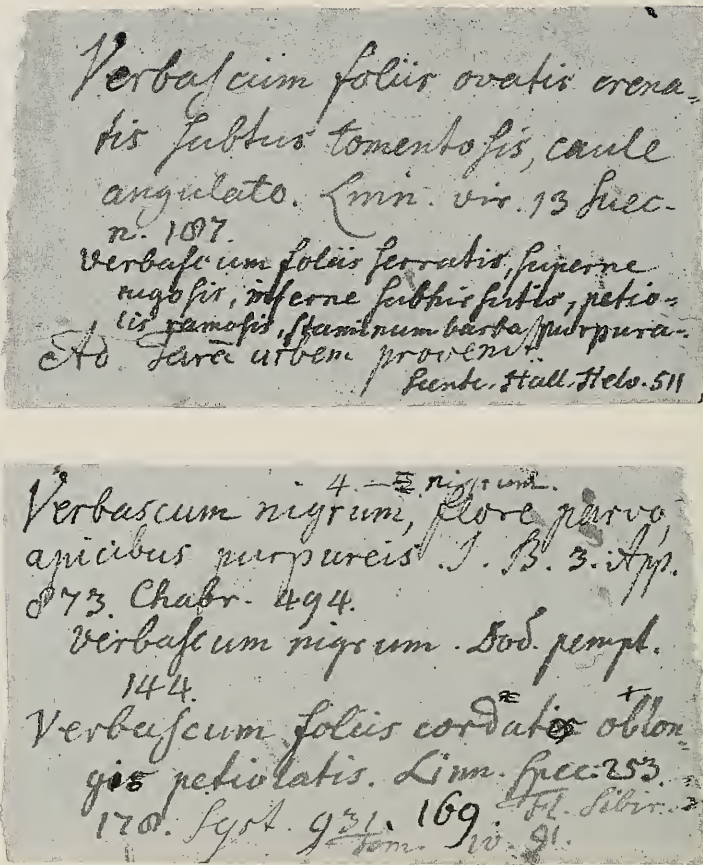 Verbaſcum foliis ovatis crena-
tis ſubtus tomentoſis, caule
angulato. Linn. vir. 13 Suec.
n. 187.
Verbaſcum foliis ſerratis, ſuperne
rugoſis, inferne ſubhirſutis, petio-
lis ramoſis, ſtaminum barba purpura-
Ad urbem provenit.
Hall. Helv. 511
4. nigrum.
Verbascum nigrum, flore parvo,
apicibus purpureis. J. B. 3. App.
873. Chabr. 494.
Verbaſcum nigrum. Dod. pempt.
144.
Verbaſcum foliis cordatis oblon-
gis petiolatis. Linn. Spec. 253.
178. Syst. 931. 169. Fl. Sibir.
Tom. IV. 91.